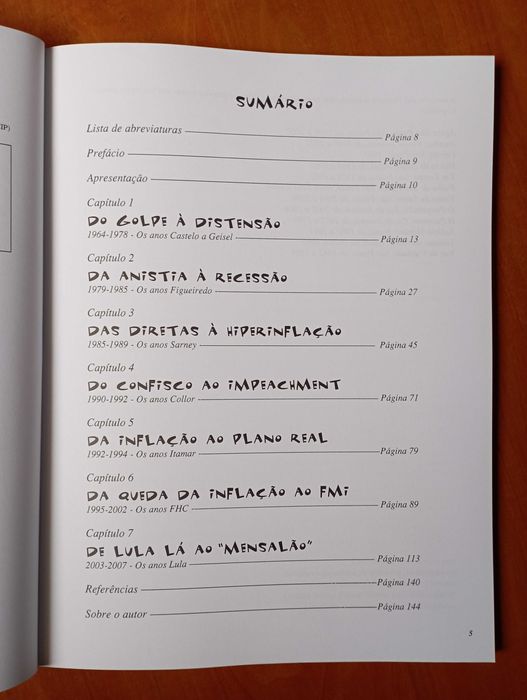 IP)
SUMÁRIO
Lista de abreviaturas Página 8
Prefácio Página 9
Apresentação Página 10
Capítulo 1
DO GOLPE À DISTENSÃO
1964-1978 - Os anos Castelo a Geisel Página 13
Capítulo 2
DA ANISTIA À RECESSÃO
1979-1985 - Os anos Figueiredo Página 27
Capítulo 3
DAS DIRETAS À HIPERINFLAÇÃO
1985-1989 - Os anos Sarney Página 45
Capítulo 4
DO CONFISCO AO IMPEACHMENT
1990-1992 - Os anos Collor Página 71
Capítulo 5
DA INFLAÇÃO AO PLANO REAL
1992-1994 - Os anos Itamar Página 79
Capítulo 6
DA QUEDA DA INFLAÇÃO AO FMI
1995-2002 - Os anos FHC Página 89
Capítulo 7
DE LULA LÁ AO "MENSALÃO"
2003-2007 - Os anos Lula Página 113
Referências Página 140
Sobre o autor Página 144
5